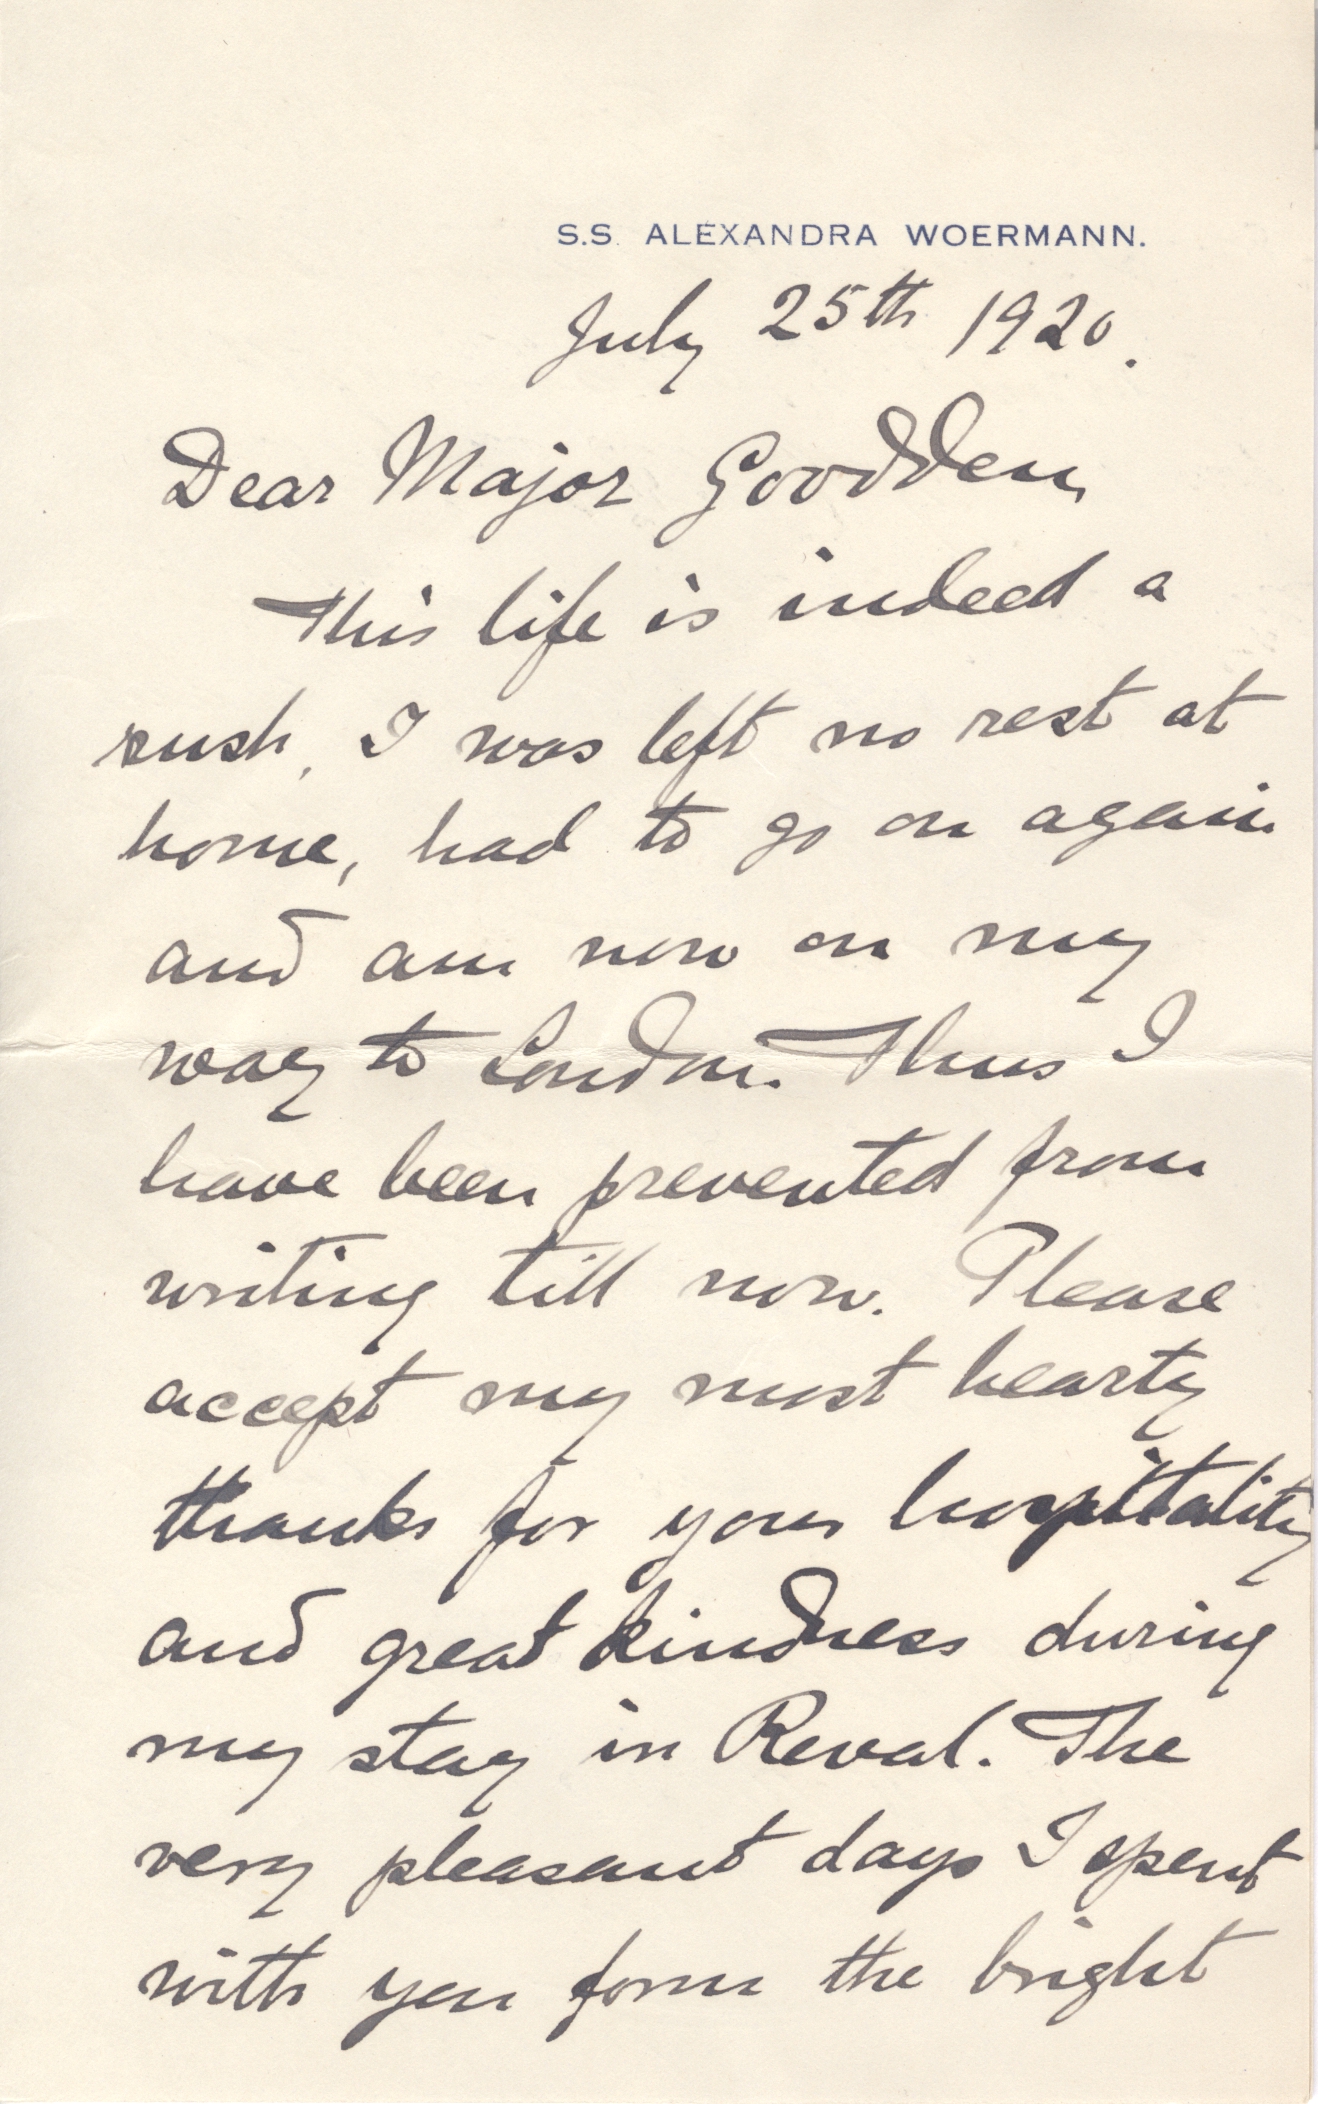 S.S. ALEXANDRA WOERMANN.
July 25th 1920.
Dear Major Goodden,
This life is indeed a
rush, I was left no rest at
home, had to go on again
and am now on my
way to London. Thus I
have been prevented from
writing till now. Please
accept my most hearty
thanks for your hospitality
and great kindness during
my stay in Reval. The
very pleasant days I spent
with you form the bright